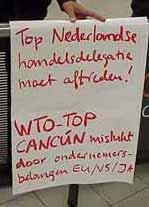 Top Nederlandse
handelsdelegatie
moet aftreden!
WTO-TOP
CANCÚN mislukt
door ondernemers-
belangen EU/VS/JA